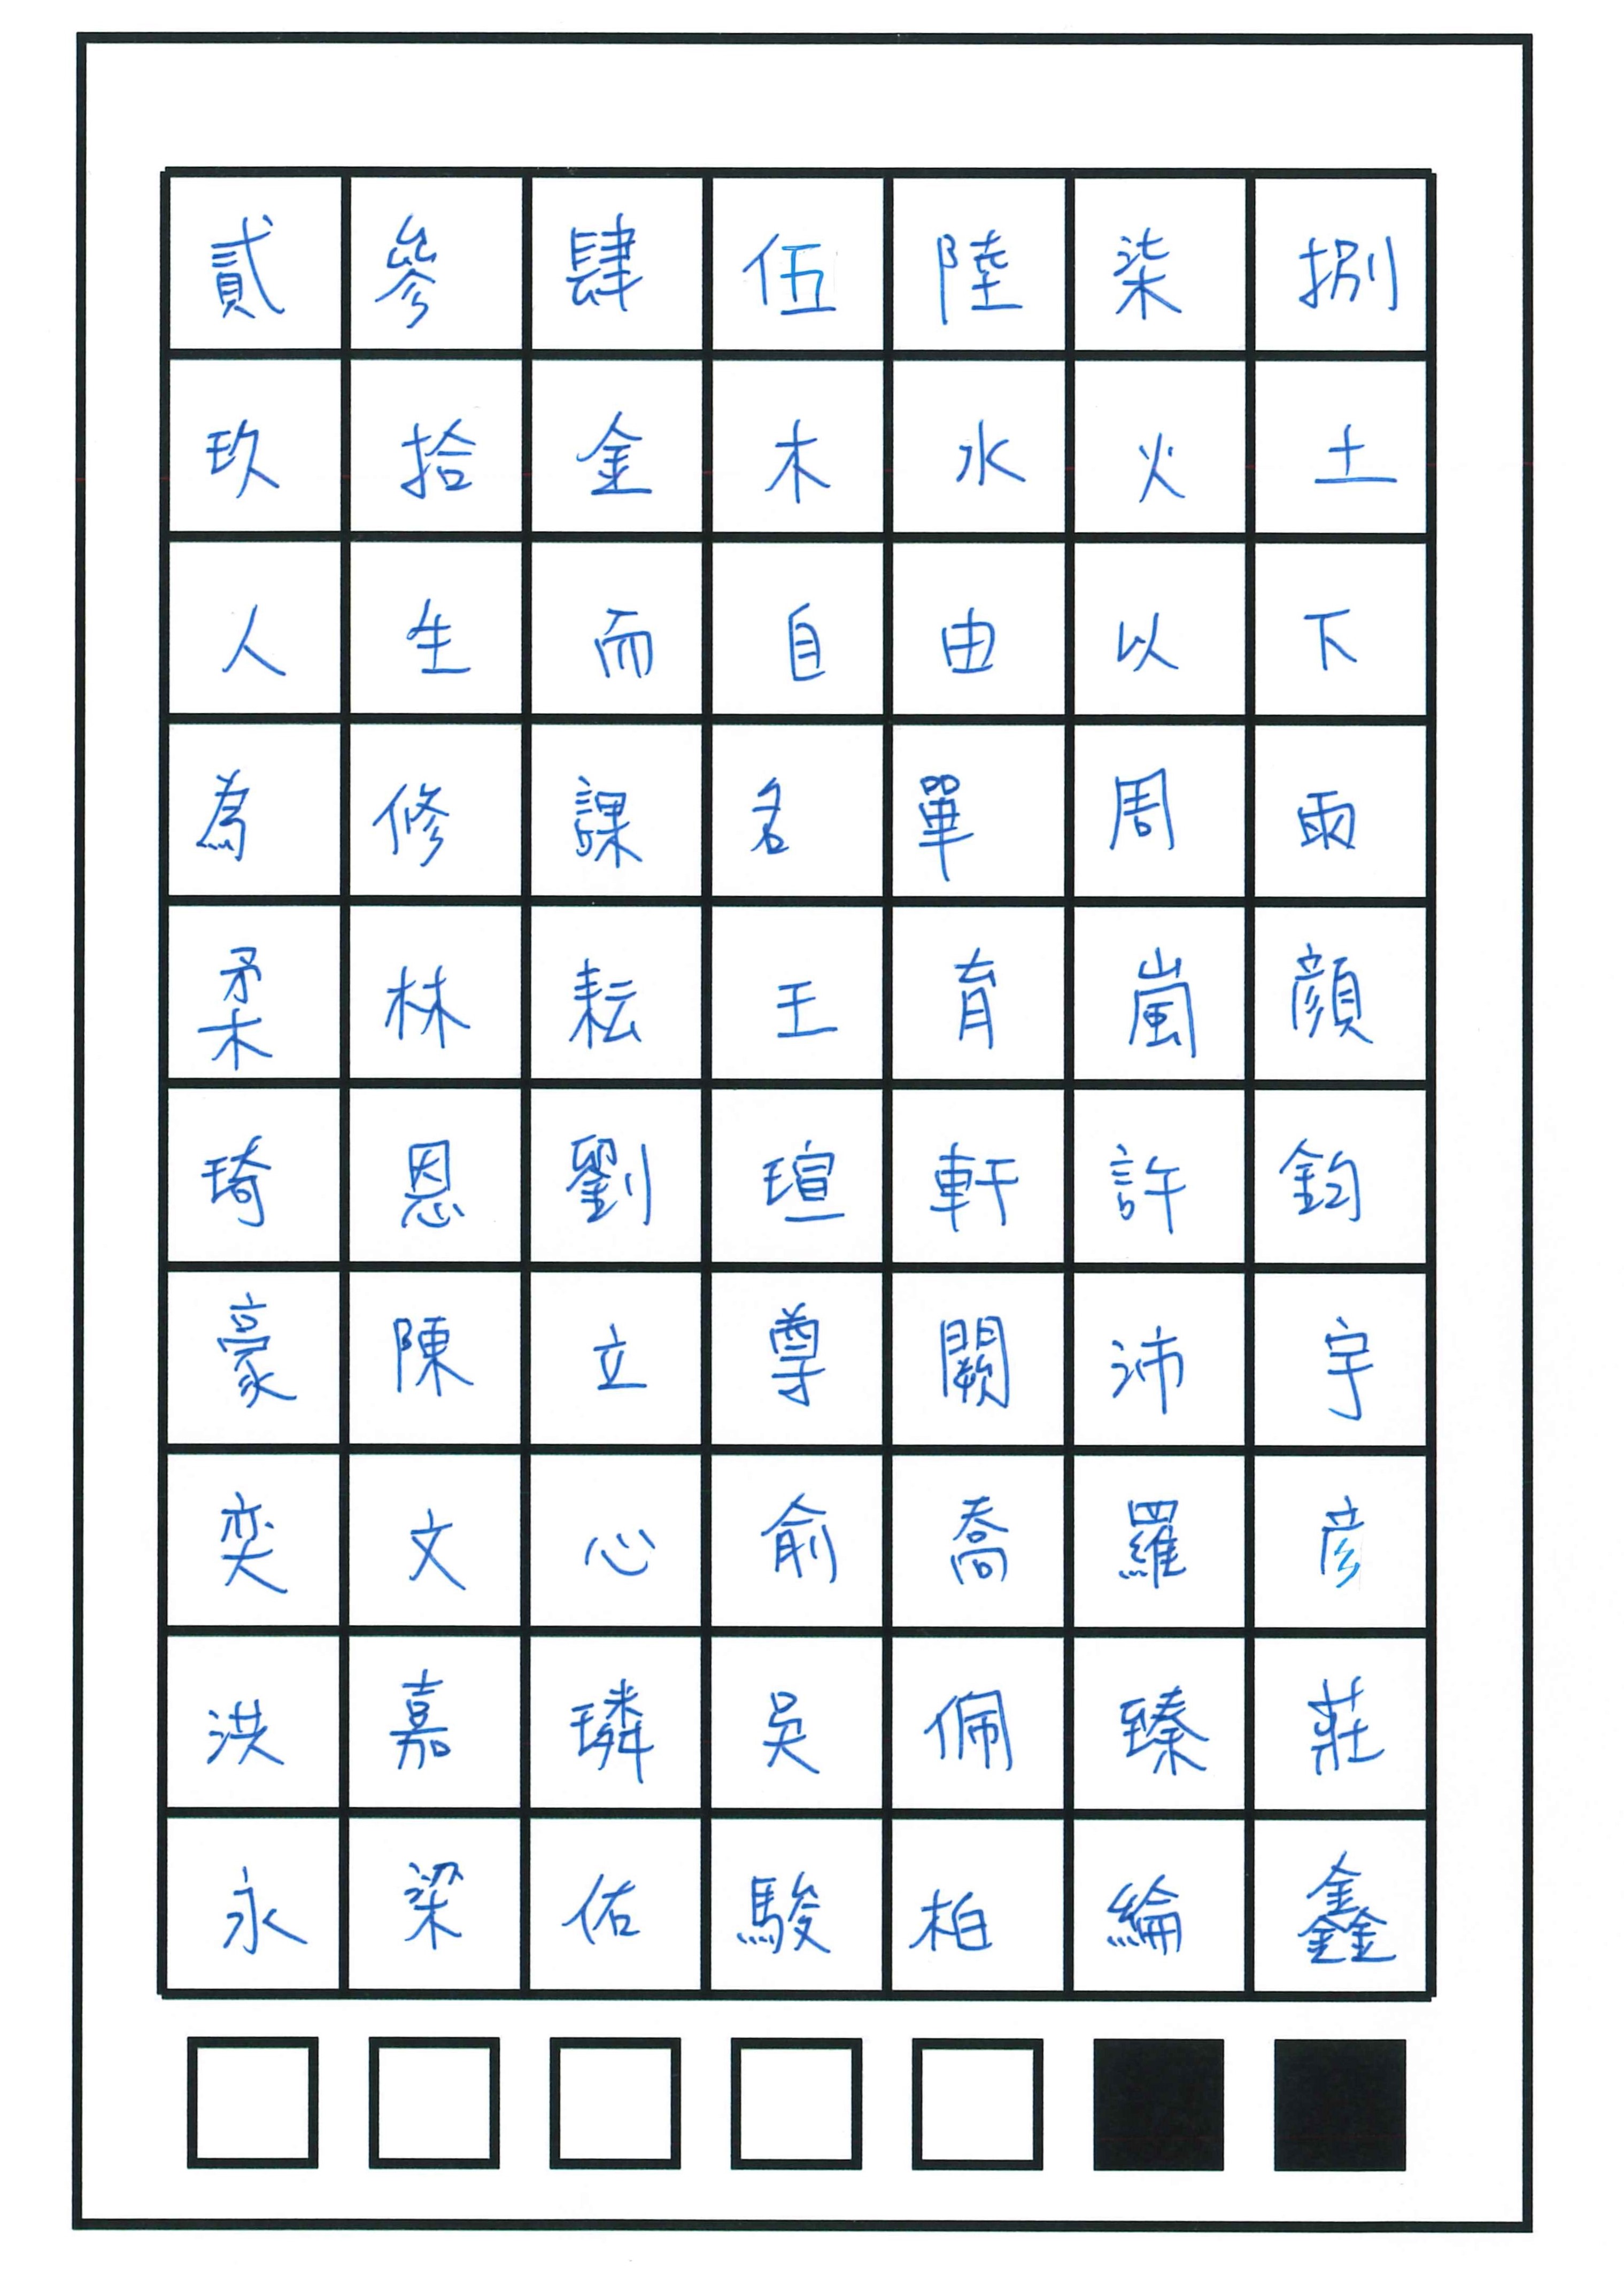 貳參肆伍陸柒捌
玖拾金木水火土
人生而自由以下
為修課名單周雨
柔林耘王育嵐顏
琦恩劉瑄軒許鈞
豪陳立尊闕沛宇
奕文心俞喬羅彥
洪嘉璘吳佩臻莊
永梁佑駿柏綸鑫